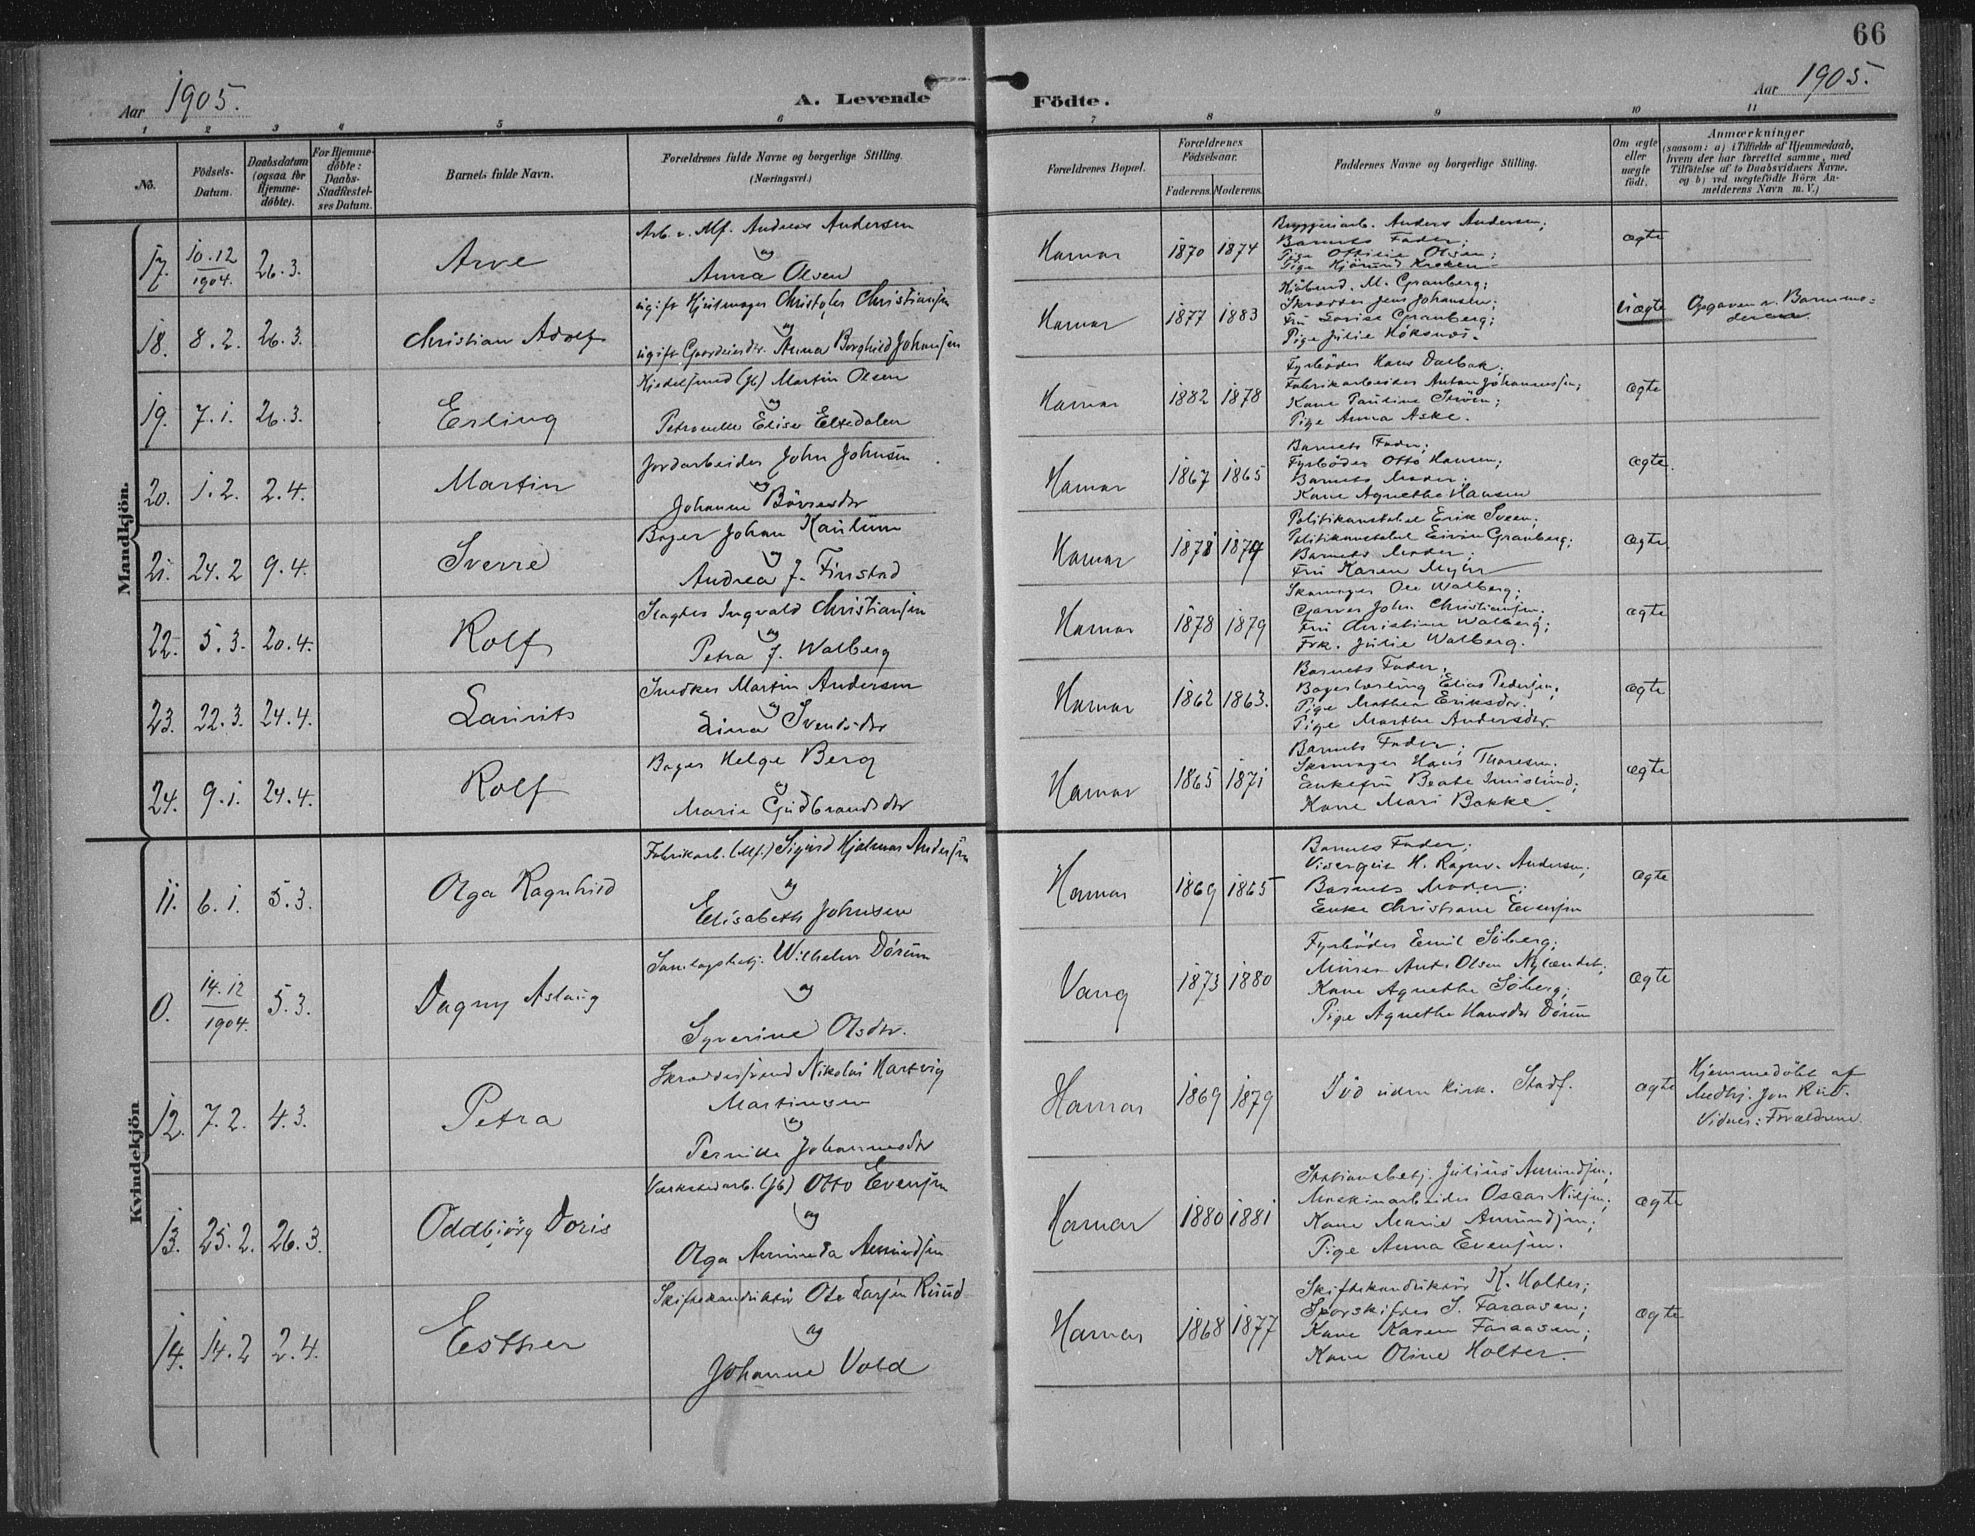 66
Aar 1905.
A. Levende Födte.
Aar 1905.
1 2 3 4 5 6 7 8 9 10 11
No.
Födsels-Datum.
Daabsdatum (ogsaa for Hjemme-döbte).
For Hjemme-döbte: Daabs-Stadfæstel-ses Datum.
Barnets fulde Navn.
Forældrenes fulde Navne og borgerlige Stilling. (Næringsvei.)
Forældrenes Bopæl.
Forældrenes Födselsaar.
Faderens. Moderens.
Faddernes Navne og borgerlige Stilling.
Om ægte eller uægte født.
Anmærkninger
(saasom: a) i Tilfælde af Hjemmedaab, hvem der har forrettet samme, med Tilföielse af to Daabsvidners Navne. og b) ved uægtefödte Börn An-melderens Navn m. V.)
Mandkjön.
17. 10.12 1904. 26.3. Arve
Arb. v. Mf. Andreas Andersen
og
Anna Olsen
Hamar 1870 1874
Bryggeriarb. Anders Andersen;
Barnets Fader;
Pige Ottilie Olsen;
ægte
18. 8.2. 26.3. Christian Adolf
ugift Hjulmager Christofer Christiansen
og
ugift Anna Borghild Johansen
Hamar 1877 1883
M. Granberg;
Skrædder Jens Johansen;
Fru Lovise Granberg;
Pige Julie Höksnes.
uægte
Opgaven v. Barnemo-
deren.
19. 7.1. 26.3. Erling
Kjedelsmed (Jb) Martin Olsen
og
Petronelle Elise Eltedalen
Hamar 1882 1878
Fyrböder Hans Dalbak;
Fabrikarbeider Anton Johannessen;
Kone Pauline
Pige Anna Aske.
ægte
20. 1.2. 2.4. Martin
Jordarbeider John Johnsen
og
Johanne Börresdtr
Hamar 1867 1865
Barnets Fader;
Fyrböder Otto Hansen;
Barnets Moder;
Kone Agnethe Hansen
ægte.
21. 24.2 9.4. Sverre
Bager Johan Kaulum
og
Andrea J. Finstad
Hamar 1878 1879
Politikonstabel Erik Sveen;
Politikonstabel Eivin Granberg;
Barnets Moder;
Fru Karen Myhr
ægte.
22. 5.3. 20.4. Rolf
Slagter Ingvald Christiansen
og
Petra J. Walberg
Hamar 1878 1879
Skomager Ole Walberg;
Garver John Christiansen;
Fru Christine Walberg;
Frk. Julie Walberg.
ægte
23. 22.3. 24.4. Laurits
Snedker Martin Andersen
og
Lina Svendsdtr
Hamar 1862 1863.
Barnets Fader;
Bagerlærling Elias Pedersen;
Pige Mathea Eriksdtr.
Pige Marthe Andersdtr.
ægte
24. 9.1. 24.4. Rolf
Bager Helge Berg
og
Marie Gudbrandsdtr
Hamar 1865 1871
Barnets Fader;
Skomager Hans Thoresen.
Enkefru Beate Imislund;
Kone Mari Bakke.
ægte
Kvindekjön
11. 6.1. 5.3. Olga Ragnhild
Fabrikarb. (Mf.) Sigurd Hjalmar Andersen
og
Elisabeth Johnsen
Hamar 1869 1865
Barnets Fader;
Visergut H. Ragnv. Andersen;
Barnets Moder;
Enke Christiane Evensen
ægte
0. 14.12 1904. 5.3. Dagny Aslaug
Samlagsbetj. Wilhelm Dörum
og
Syverine Olsdtr.
Vang 1873 1880
Fyrböder Emil Söberg;
Murer Ant. Olsen Nylændet;
Kone Agnethe Söberg;
Pige Agnethe Hansdtr Dörum
ægte
12. 7.2. 4.3. Petra
Skræddersvend Nikolai Hartvig
Martinsen
og
Pernille Johannesdtr
Hamar 1869 1879
Död uden kirk. Stadf.
ægte
Hjemmedöbt af
Medhj. Jon Rud.
Vidner: Forældrene.
13. 25.2. 26.3. Oddbjörg Doris
Værkstedarb. (Jb) Otto Evensen
og
Olga Aminda Amundsen
Hamar 1880 1881
Stationsbetj. Julius Amundsen;
Maskinarbeider Oscar Nilsen;
Kone Marie Amundsen;
Pige Anna Evensen.
ægte
14. 14.2 2.4. Esther
Skiftekonduktör Ole Larsen Ruud
og
Johanne Vold
Hamar 1868 1877
Skiftekonduktör K. Holter;
Sporskifter S. Faraasen;
Kone Karen Faraasen;
Kone Oline Holter.
ægte